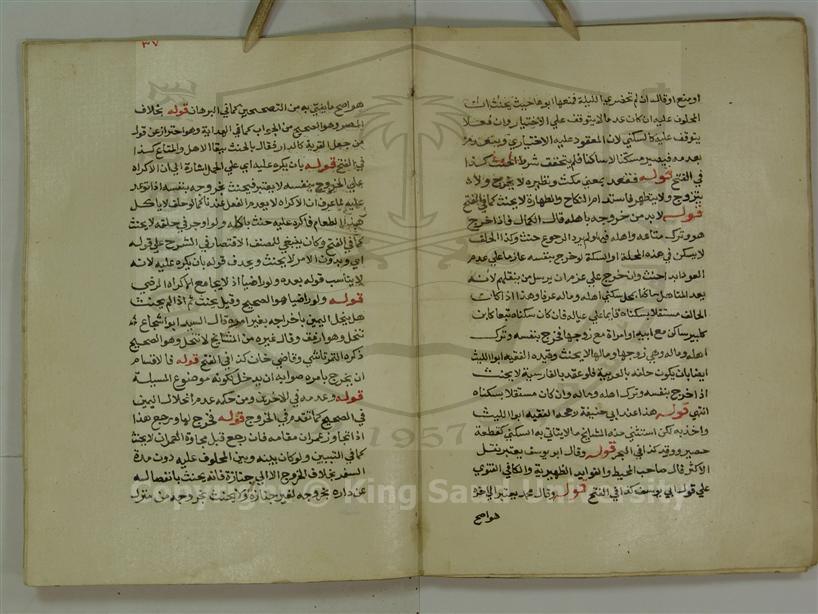 او منع او قال ان لم تحضري الليلة فمنعها ابوها حيث يحنث لان
المحلوف عليه ان كان عدما لا يتوقف على الاختيار وان فعلا
يتوقف عليه كالسكنى لان المعقود عليه الاختياري وينعدم
بعدمه فيصير مسكنا لا ساكنا فلم يتحقق شرط الحنث كذا
في الفتح قوله فقعد بمعنى مكث ونظيره لا يخرج ولا
يتزوج ولا يتطهر فاستدام النكاح والطهارة لا يحنث كما في الفتح
قوله لا بد من خروجه باهله قال الكمال فاذا خرج
هو وترك متاعه واهله فيها ولم يرد الرجوع حنث وكذا الحلف
لا يسكن في هذه المحلة او السكة لو خرج بنفسه عازما على عدم
العود ابدا حنث وان خرج على عزم ان يرسل من ينقلهم لانه
يعد المتاهل ساكنا بمحل سكنى اهله وماله عرفا وهذا اذا كان
الحالف مستقلا بسكناه قائما على عياله فان كان سكناه تبعا كابن
كبير ساكن مع ابيه او امراة مع زوجها فخرج بنفسه وترك
اهله وماله وهي زوجها ومالها لا يحنث وقيده الفقيه ابو الليث
ايضا بان يكون حلفه بالعربية فلو عقد بالفارسية لا يحنث
اذا خرج بنفسه وترك اهله وماله وان كان مستقلا بسكناه
انتهى قوله هذا عند ابي حنيفة رحمه الفقيه ابو الليث
واخذ به لكن استثنى منه المشايخ ما لا يتاتى به السكنى كقطعة
حصير ووتد كذا في البحر قوله وقال ابو يوسف يعتبر نقل
الاكثر قال صاحب المحيط والفوايد الظهيرية والكافي الفتوى
على قول ابي يوسف كذا في الفتح قوله وقال محمد يعتبر الى اخره
هو اصح
٣٧
هو اصح ما يفتى به من التصحيحين كما في البرهان قوله بخلاف
المصر وهو الصحيح من الجواب كما في الهداية وهو احتراز عن قول
من جعل القرية كالدار فقال بالحنث ببقاء الاهل والمتاع كذا
في الفتح قوله بان يكره عليه اي على الحمل اشارة الى ان الاكراه
على الخروج بنفسه لا يعتبر فيحنث بخروجه بنفسه اذا توعد
عليه لما عرف ان الاكراه لا يعدم الفعل عندنا كما لو حلف لا ياكل
هذا الطعام فاكره عليه حنث باكله ولو اوجر في حلقه لا يحنث
كما في الفتح وكان ينبغي للمصنف الاقتصار في الشرح على قوله
اي وبدون الامر لا يحنث ويحذف قوله بان يكره عليه لانه
لا يناسب قوله بعده ولو راضيا اذ لا يجامع الاكراه الرضي
قوله ولو راضيا هو الصحيح وقيل يحنث ثم اذا لم يحنث
هل ينحل اليمين باخراجه بغير امره قال السيد ابو شجاع
تنحل وهو ارفق وقال غيره من المشايخ لا تنحل وهو الصحيح
ذكره التمرتاشي وقاضي خان كذا في الفتح قوله فالاقسام
ان يخرج بامره صوابه ان يدخل لكونه موضوع المسيلة
قوله وعدمه في الاخرين ومن حكمه عدم انحلال اليمين
في الصحيح كما تقدم في الخروج قوله فخرج لها ورجع هذا
اذا تجاوز عمران مقامه فان رجع قبل مجاوزة العمران لا يحنث
كما في التبيين ولو كان بينه وبين المحلوف عليه دون مدة
السفر بخلاف الخروج الا الى جنازة فانه يحنث بانفصاله
عن داره بخروجه لغير جنازة ولا يحنث بخروجه من منزله
Copyright © King Saud University
1957